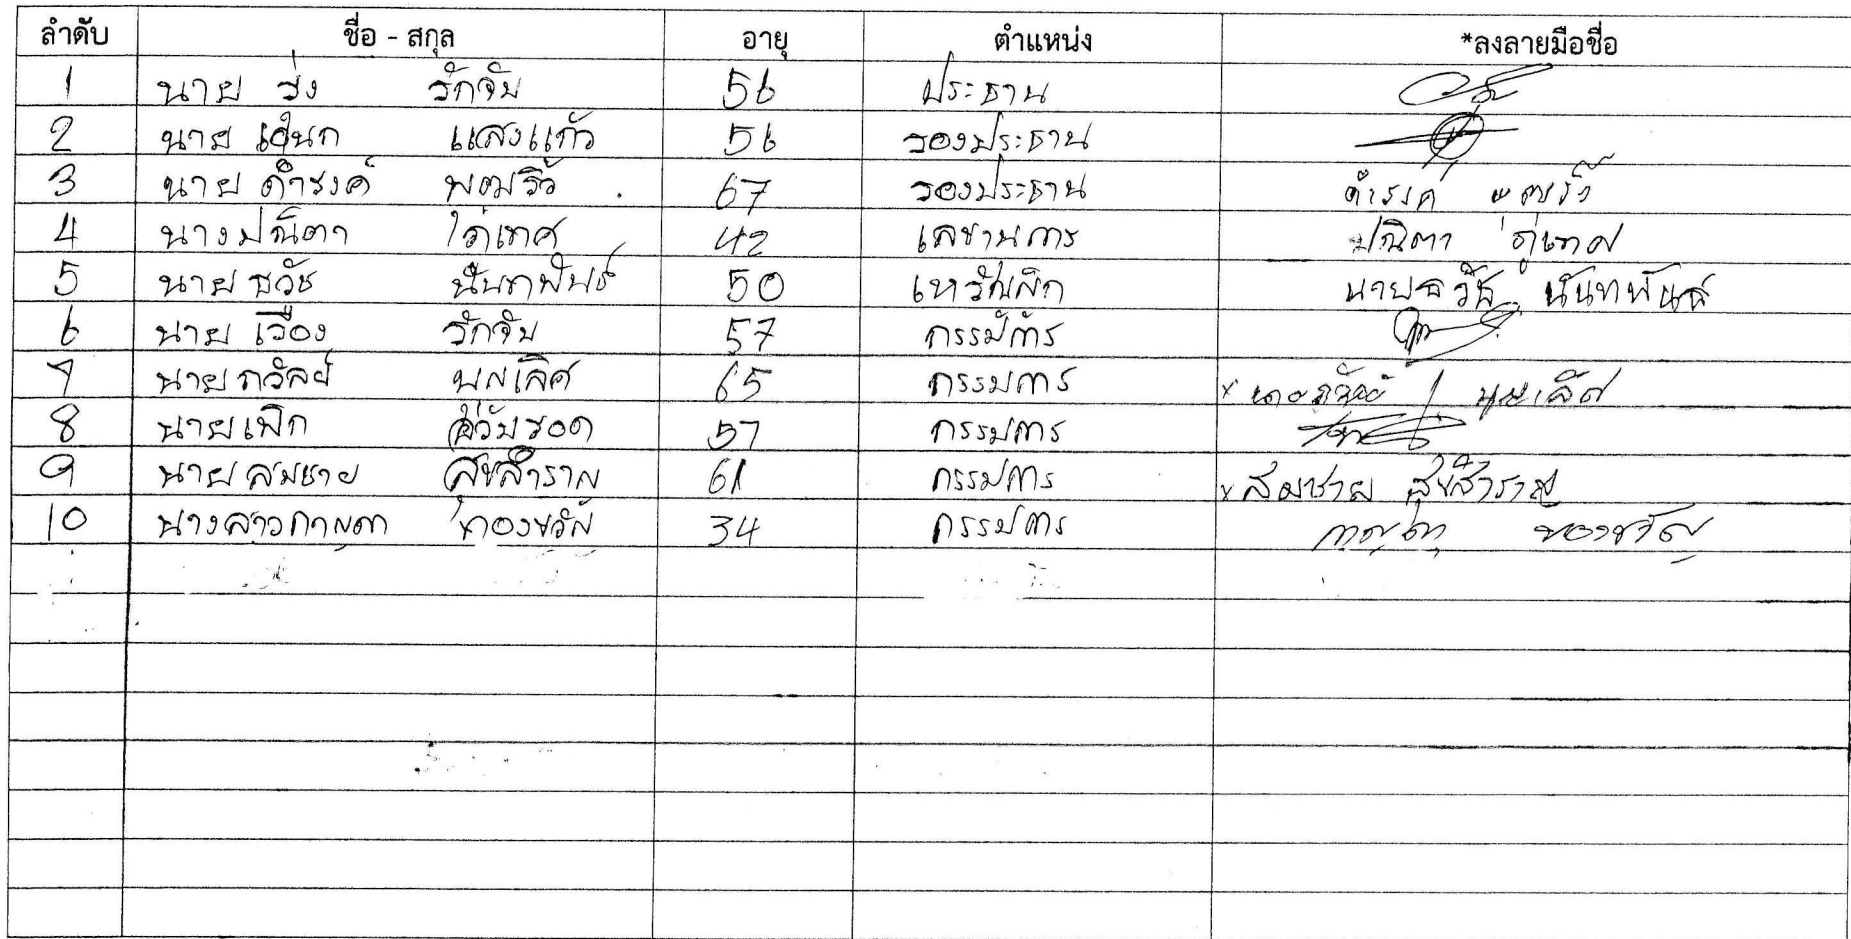 ลำดับ ชื่อ - สกุล อายุ ตำแหน่ง *ลงลายมือชื่อ
1 นาย รักจับ 56 ประธาน
2 นาย เอนก แสงแก้ว 56 รองประธาน
3 นาย ดำรงค์ 67 รองประธาน ดำรงค์
4 นางปณิตา 42 เลขานุการ ปณิตา
5 นาย ธวัช นันทพันธ์ 50 เหรัญญิก นายธวัช นันทพันธ์
6 นาย เรือง รักจับ 57 กรรมการ
7 นาย 65 กรรมการ
8 นาย 57 กรรมการ
9 นาย สมชาย สุขสำราญ 61 กรรมการ x สมชาย สุขสำราญ
10 นางสาวกาญดา ทองขวัญ 34 กรรมการ กาญดา ทองขวัญ